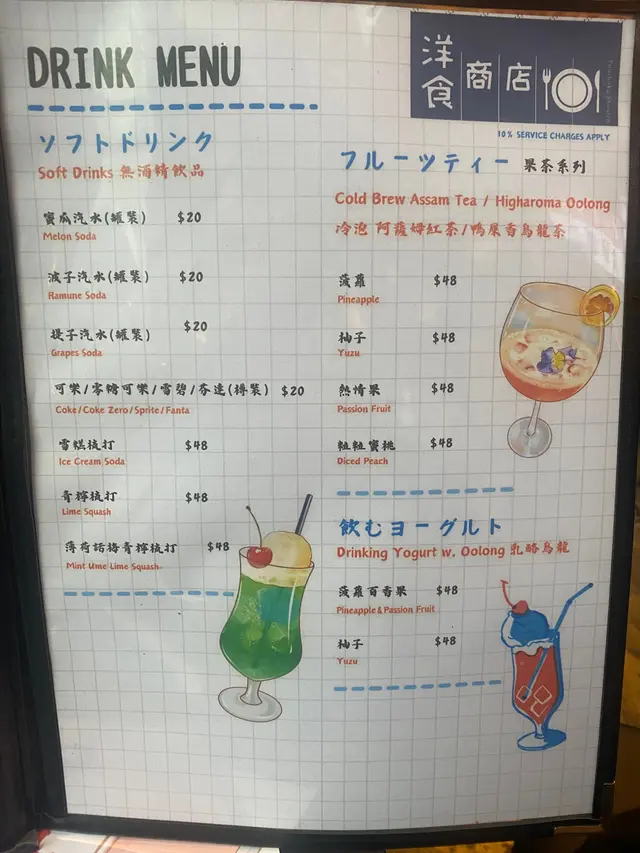 DRINK MENU
洋食商店
10% SERVICE CHARGES APPLY
ソフトドリンク
Soft Drinks 無酒精飲品
蜜瓜汽水(罐裝) $20
Melon Soda
波子汽水(罐裝) $20
Ramune Soda
提子汽水(罐裝) $20
Grapes Soda
可樂/零糖可樂/雪碧/芬達(樽裝) $20
Coke/Coke Zero/Sprite/Fanta
雪糕梳打 $48
Ice Cream Soda
青檸梳打 $48
Lime Squash
薄荷話梅青檸梳打 $48
Mint Ume Lime Squash
フルーツティー 果茶系列
Cold Brew Assam Tea / Higharoma Oolong
冷泡 阿薩姆紅茶/鴨屎香烏龍茶
菠蘿 $48
Pineapple
柚子 $48
Yuzu
熱情果 $48
Passion Fruit
粒粒蜜桃 $48
Diced Peach
飲むヨーグルト
Drinking Yogurt w. Oolong 乳酪烏龍
菠蘿百香果 $48
Pineapple & Passion Fruit
柚子 $48
Yuzu